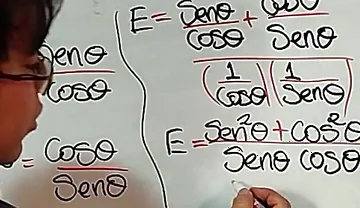 Senθ
Cosθ
= Cosθ
Senθ
E = Senθ + Cosθ
Cosθ Senθ
(1)(1)
Cosθ Senθ
E = Sen²θ + Cos²θ
Senθ Cosθ